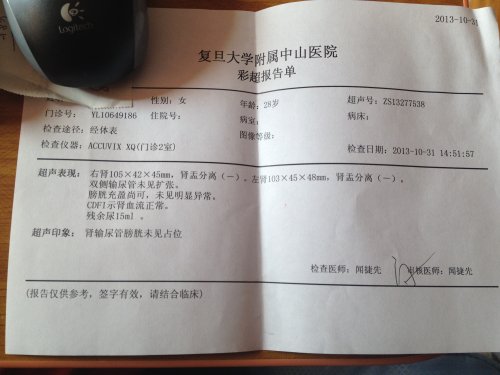 Logitech
2013-10-31
复旦大学附属中山医院
彩超报告单
性别：女 年龄：28岁 超声号：ZS13277538
门诊号： YL10649186 住院号： 病室： 病床：
检查途径：经体表 图像等级：
检查仪器：ACCUVIX XQ(门诊2室) 检查日期：2013-10-31 14:51:57
超声表现：右肾105×42×45mm，肾盂分离（－）。左肾103×45×48mm，肾盂分离（－）。
双侧输尿管未见扩张。
膀胱充盈尚可，未见明显异常。
CDFI示肾血流正常。
残余尿15ml 。
超声印象： 肾输尿管膀胱未见占位
检查医师：闻捷先 审核医师：闻捷先
(报告仅供参考，签字有效，请结合临床)